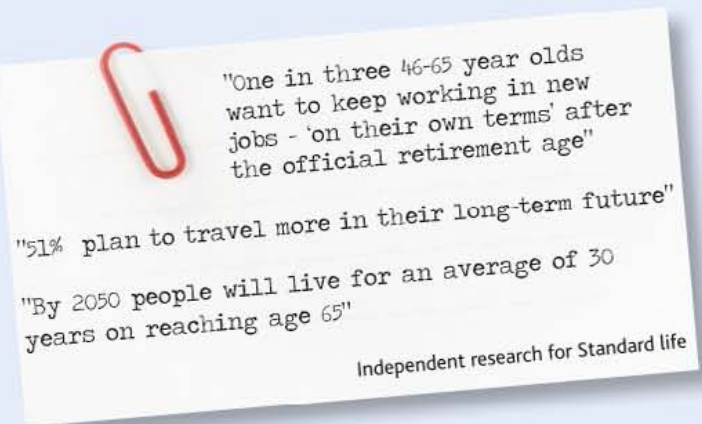 "One in three 46-65 year olds
want to keep working in new
jobs - 'on their own terms' after
the official retirement age"
"51% plan to travel more in their long-term future"
"By 2050 people will live for an average of 30
years on reaching age 65"
Independent research for Standard life